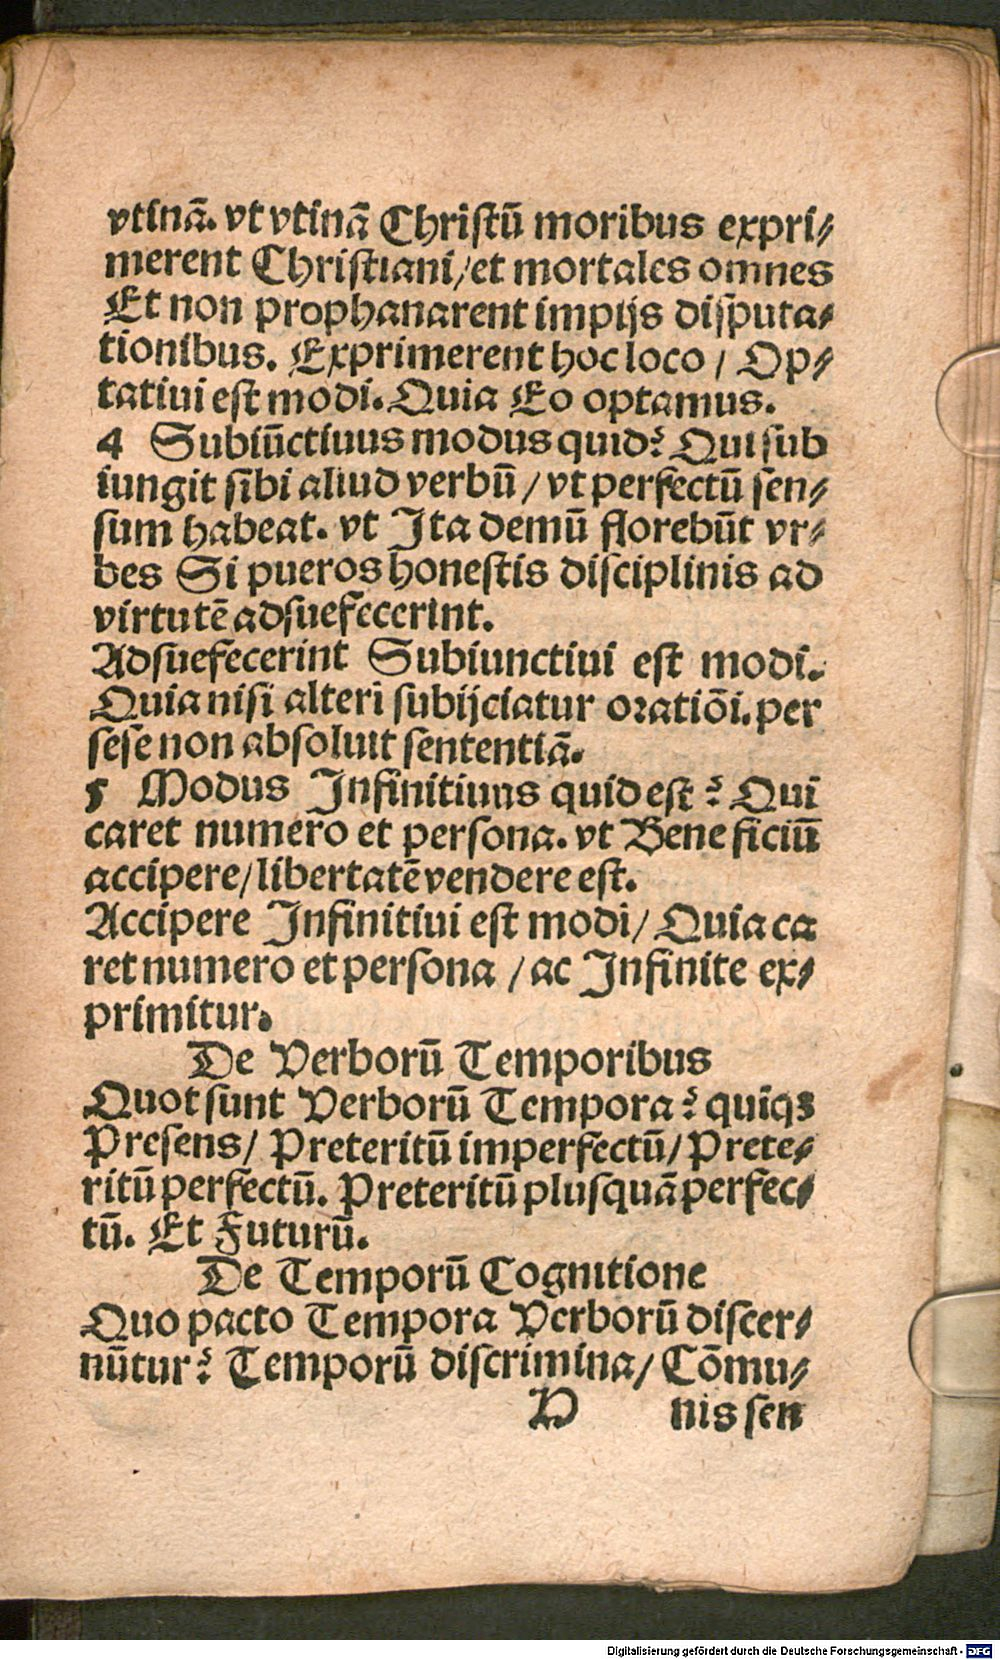 vtinã. vt vtinã Christũ moribus expri⸗
merent Christiani/et mortales omnes
Et non prophanarent impijs disputa⸗
tionibus. Exprimerent hoc loco / Op⸗
tatiui est modi. Quia Eo optamus.
4 Subiũctiuus modus quid? Qui sub
iungit sibi aliud verbũ / vt perfectũ sen⸗
sum habeat. vt Ita demũ florebũt vr⸗
bes Si pueros honestis disciplinis ad
virtutẽ adsuefecerint.
Adsuefecerint Subiunctiui est modi.
Quia nisi alteri subijciatur oratiõi. per
sese non absoluit sententiã.
5 Modus Infinitiuus quid est? Qui
caret numero et persona. vt Beneficiũ
accipere/libertatẽ vendere est.
Accipere Infinitiui est modi/ Quia ca
ret numero et persona / ac Infinite ex⸗
primitur.
De Verborũ Temporibus
Quot sunt Verborũ Tempora? quĩqꝫ
Presens/ Preteritũ imperfectũ/ Prete⸗
ritũ perfectũ. Preteritũ plusquã perfec⸗
tũ. Et Futurũ.
De Temporũ Cognitione
Quo pacto Tempora Verborũ discer⸗
nũtur? Temporũ discrimina/ Cõmu⸗
D nis sen
Digitalisierung gefördert durch die Deutsche Forschungsgemeinschaft - DFG